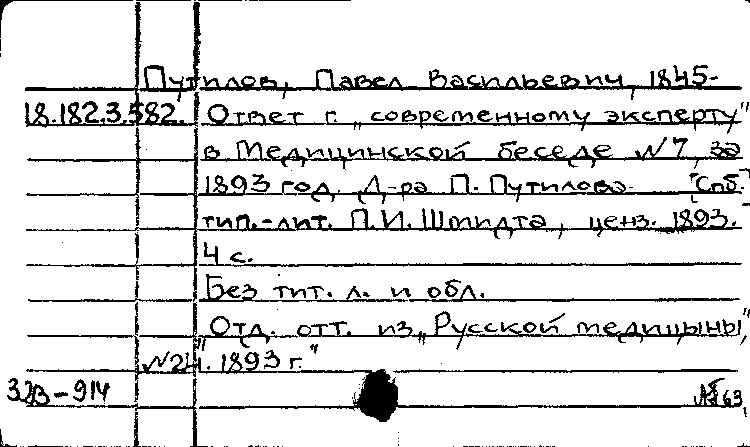 Путилов, Павел Васильевич, 1845-
18.182.3.582. Ответ г. „современному эксперту"
в Медицинской беседе №7, за
1893 год. Д-ра П. Путилова. [Спб.]
тип.-лит. П.И. Шмидта, ценз. 1893.
4 с.
Без тит. л. и обл.
„Отд. отт. из „Русской медицыны",
№24. 1893 г."
323-914